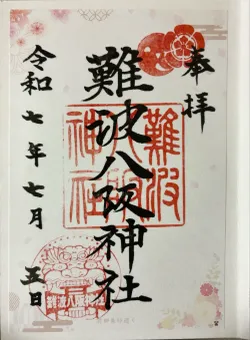 奉拝
難波八阪神社
難波八阪神社
令和七年七月五日
難波八阪神社